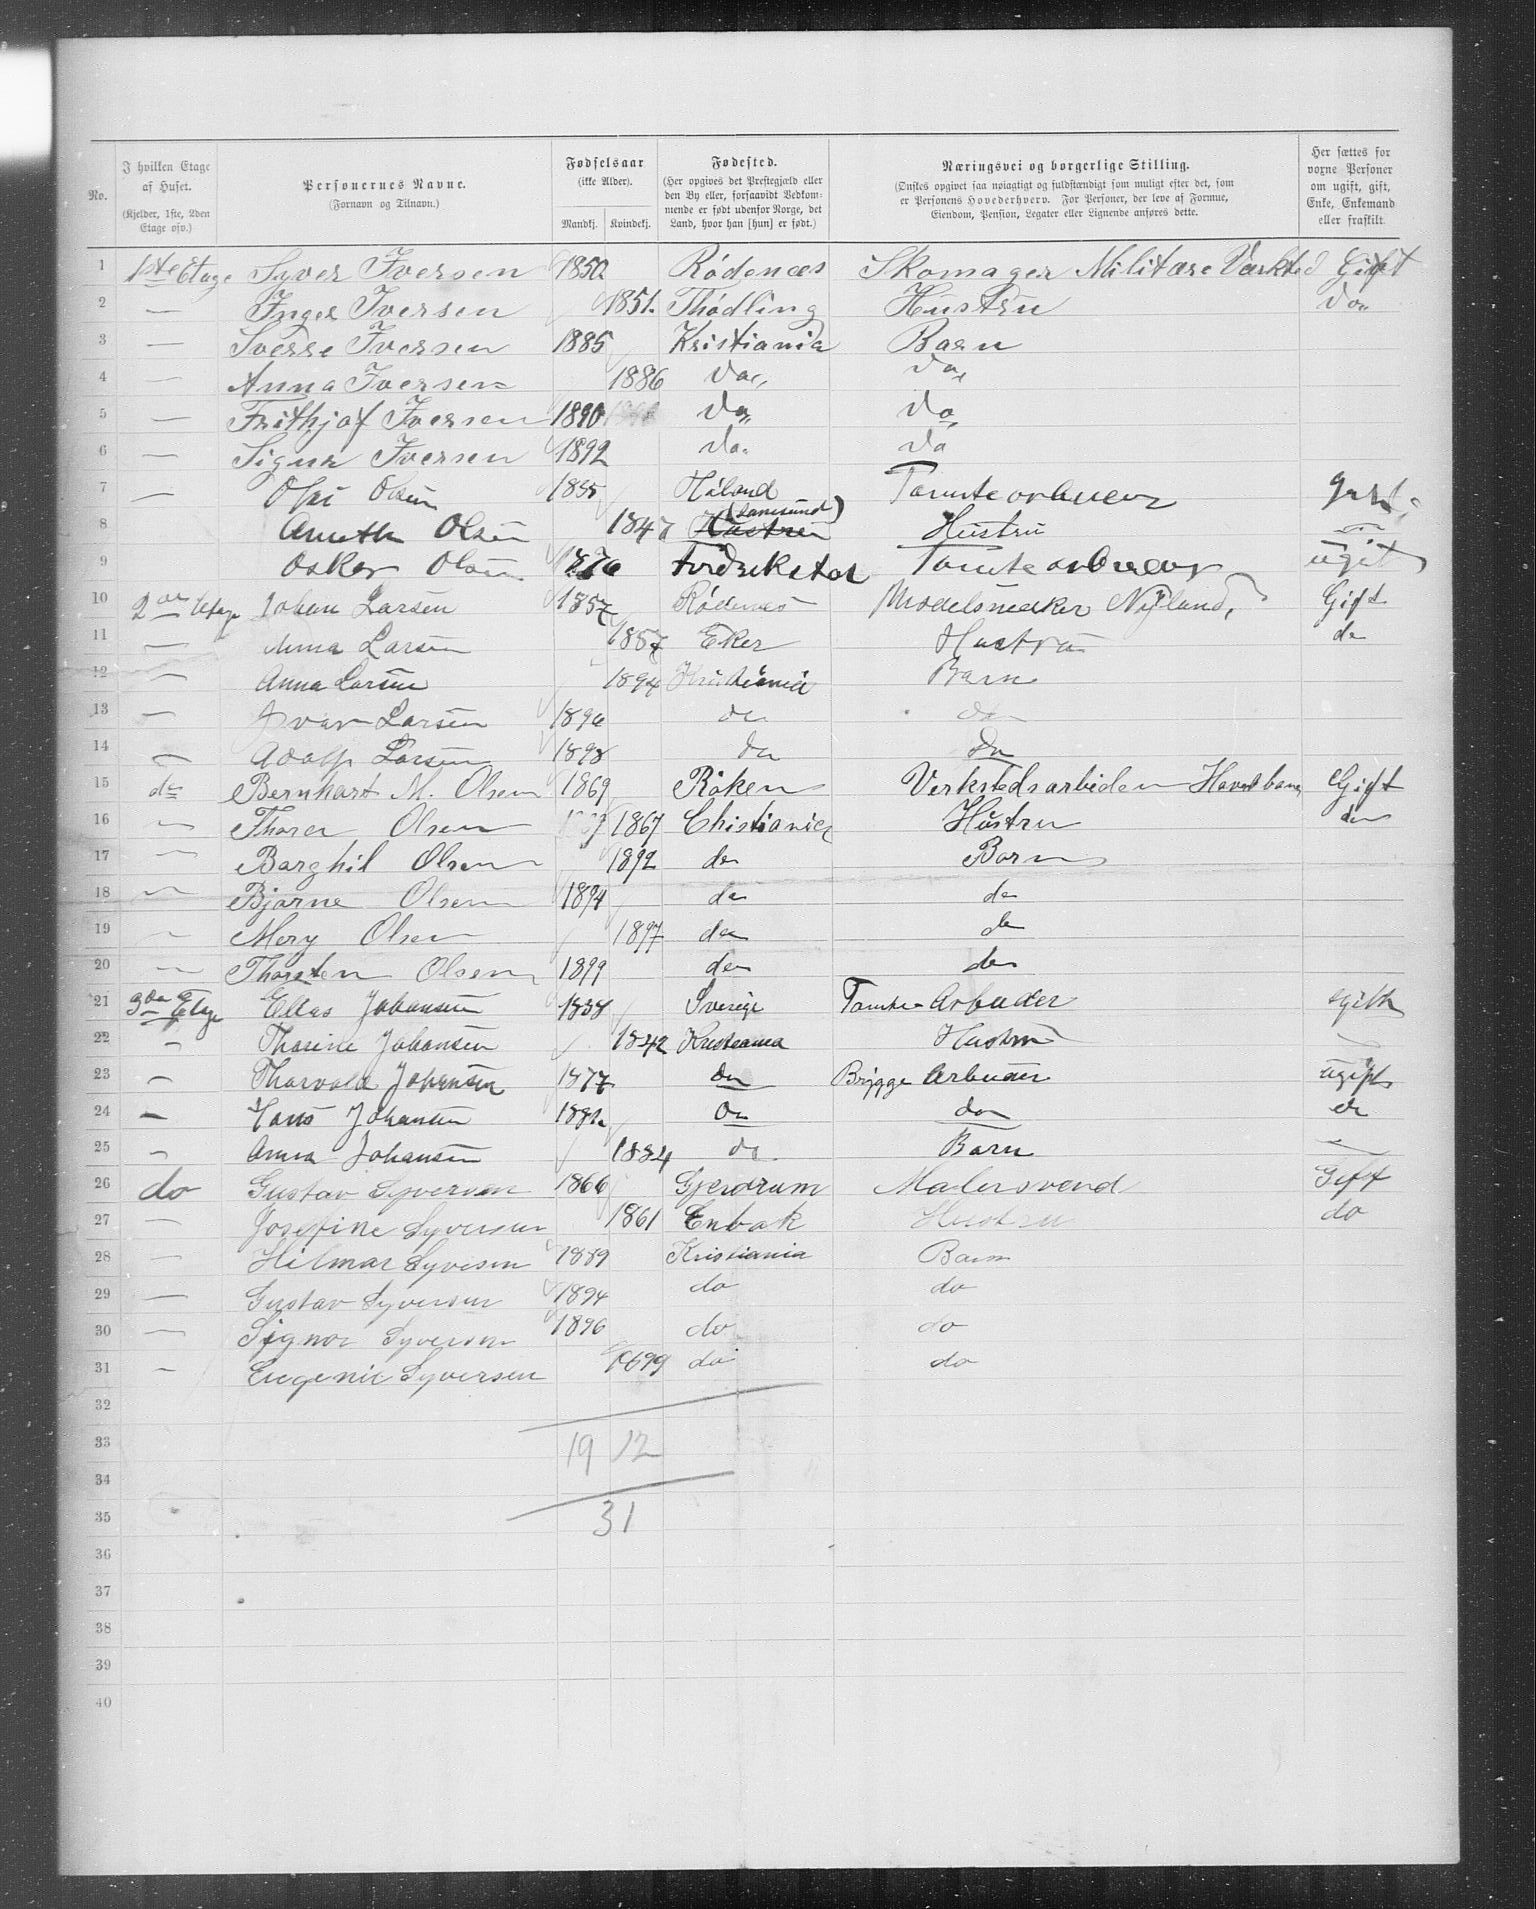 No. | I hvilken Etage af Huset. (Kjelder, 1ste, 2den Etage osv.) | Personernes Navne. (Fornavn og Tilnavn.) | Fødselsaar (ikke Alder). Mandkj. Kvindekj. | Fødested. (Her opgives det Prestegjæld eller den By eller, forsaavidt Vedkommende er født udenfor Norge, det Land, hvor han [hun] er født.) | Næringsvei og borgerlige Stilling. (Ønskes opgivet saa nøiagtigt og fuldstændigt som muligt efter det, som er Personens Hovederhverv. For Personer, der leve af Formue, Eiendom, Pension, Legater eller Lignende anføres dette. | Her sættes for voxne Personer om ugift, gift, Enke, Enkemand eller fraskilt.
1 1ste Etage Syver Iversen 1850 Rödenæs Skomager Militære Værksted Gift
2 — Inger Iversen 1851. Thödling Hustru Do
3 — Sverre Iversen 1885 Kristiania Barn
4 — Anna Iversen 1886 Do Do
5 — Frithjof Iversen 1890 Do Do
6 — Sigur Iversen 1892 Do Do
7 — Olsen 1835 Höland Tomtearbeider gift
8 — Aneth Olsen 1847 Hustru Hustru —
9 Oskar Olsen 1876 Fredrikstad Tomtearbeider ugift
10 2den Etage Johan Larsen 1857 Rödenes Modelsnedker Nyland, Gift
11 — Anna Larsen 1857 Eker Hustru do
12 — Anna Larsen 1894 Kristiania Barn
13 — Ivar Larsen 1896 do do
14 — Adolf Larsen 1898 do do
15 do Bernhart M. Olsen 1869 Röken Verkstedsarbeider Hovedbanen Gift
16 — Thora Olsen 1867 Christiania Hustru do
17 — Borghil Olsen 1892 do Barn
18 — Bjarne Olsen 1894 do do
19 — Mery Olsen 1897 do do
20 — Thorsten Olsen 1899 do do
21 3die Etage Elias Johansen 1838 Sverige Tomte Arbeider gift
22 — Thorine Johansen 1842 Kristiania Hustru —
23 — Thorvald Johansen 1877 do Brygge Arbeider ugift
24 — Hans Johansen 1882 do do do
25 — Anna Johansen 1884 do Barn —
26 do Gustav Syversen 1866 Gjerdrum Malersvend Gift
27 — Josefine Syversen 1861 Enbak Hustru do
28 — Hilmar Syvesen 1889 Kristiania Barn
29 — Gustav Syversen 1894 do do
30 — Signor Syversen 1896 do do
31 — Eugenie Syversen 1899 do do
32
33 19 12
34
35 31
36
37
38
39
40